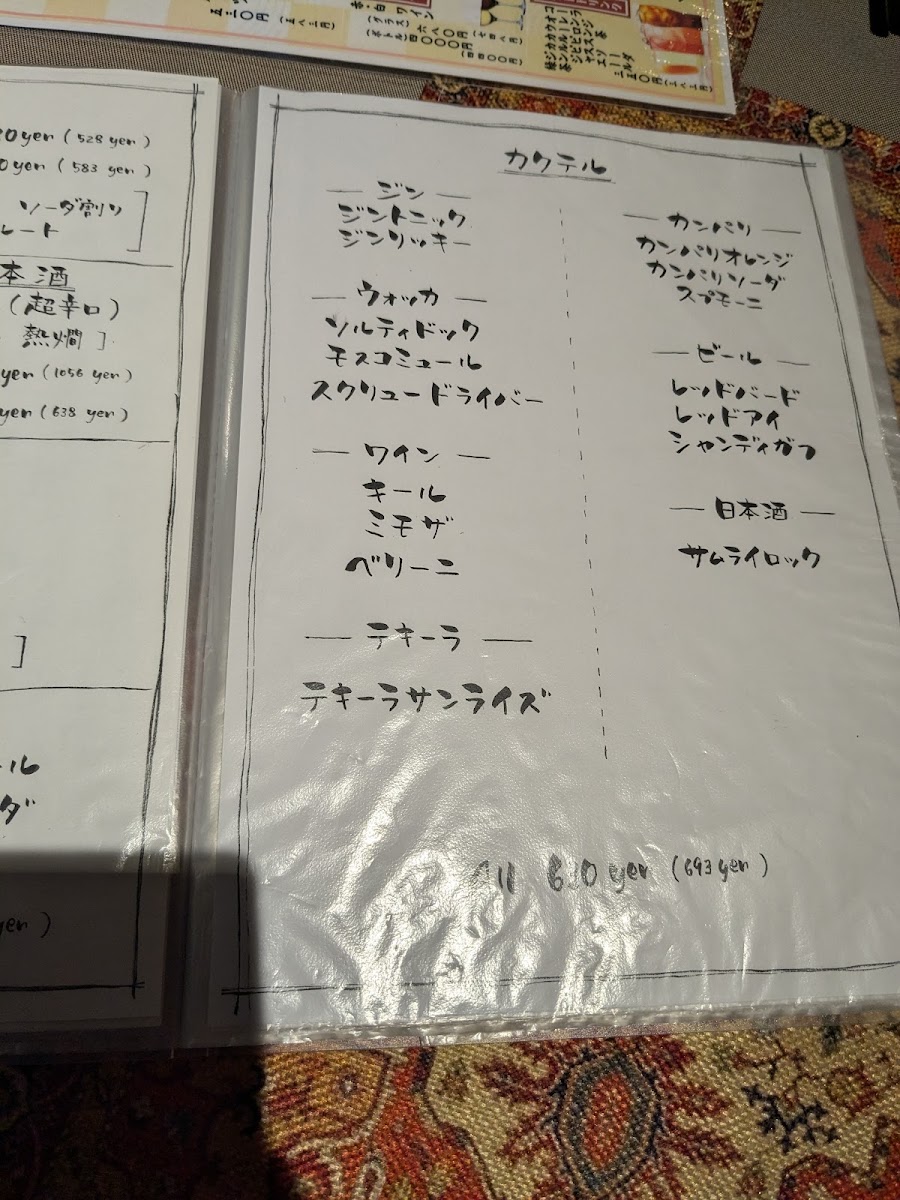 五三〇円
(五八三円)
赤・白ワイン
(グラス)六八〇円
(七四八円)
(ボトル)四〇〇〇円
(四四〇〇円)
yen (528 yen)
yen (583 yen)
ソーダ割り
レート
本酒
(超辛口)
熱燗]
yen (1056 yen)
yen (638 yen)
]
ール
ダ
yen)
カクテル
— ジン —
ジントニック
ジンリッキー
— ウォッカ —
ソルティドック
モスコミュール
スクリュードライバー
— ワイン —
キール
ミモザ
ベリーニ
— テキーラ —
テキーラサンライズ
— カンパリ —
カンパリオレンジ
カンパリソーダ
スプモーニ
— ビール —
レッドバード
レッドアイ
シャンディガフ
— 日本酒 —
サムライロック
All 630 yen (693 yen)